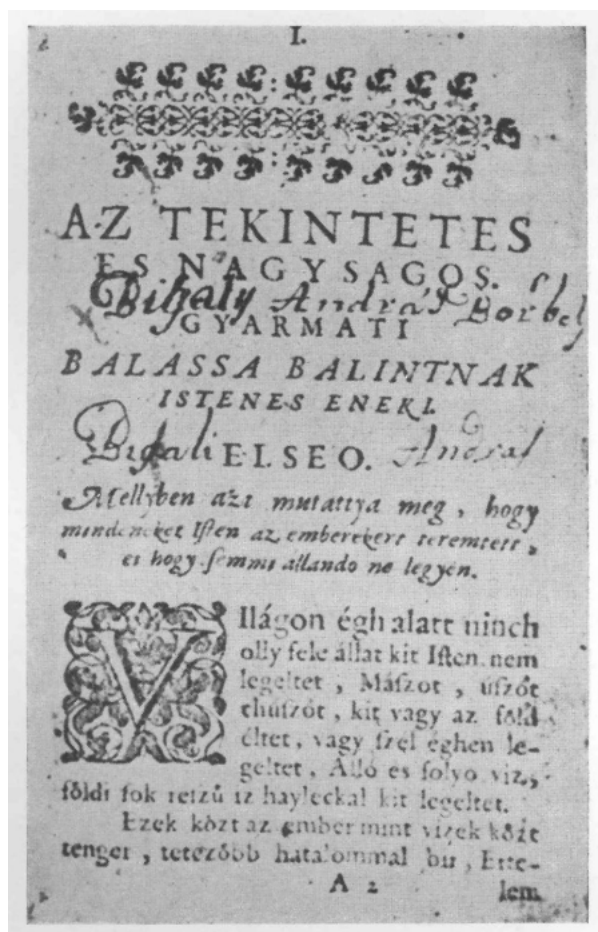 I.
AZ TEKINTETES
ES NAGYSAGOS.
Bihaly András Borbely
GYARMATI
BALASSA BALINTNAK
ISTENES ENEKI.
Bihali ELSEO. Andras
Mellyben azt mutattya meg, hogy
mindeneket Isten az emberekert teremtett,
es hogy semmi allando ne legyen.
VIlágon égh alatt ninch
olly fele állat kit Isten nem
legeltet, Mászot, úszót
chúszót, kit vagy az föld
éltet, vagy szel éghen le-
geltet, Álló es folyo viz,
földi sok reizű iz hayleckal kit legeltet.
Ezek közt az ember mint vizek közt
tenger, tetezőbb hatalommal bir, Erte-
A 2 lem